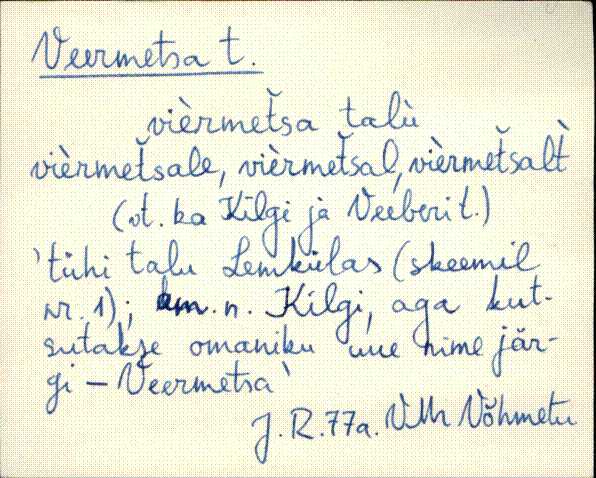 Veermetsa t.
vièrmet̆sa talù
vièrmet̆sale, vièrmet̆sal, vièrmet̆salt̀
(vt. ka Kilgi ja Veeberi t.)
'tühi talu Lemkülas (skeemil
nr. 1); am. n. Kilgi, aga kut-
sutakse omaniku uue nime jär-
gi – Veermetsa'
J. R. 77a. VMr Võhmetu